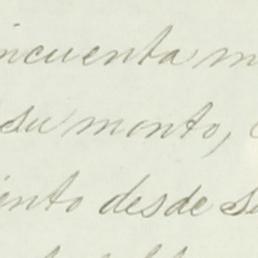 incuenta m
su monto,
iento desde su